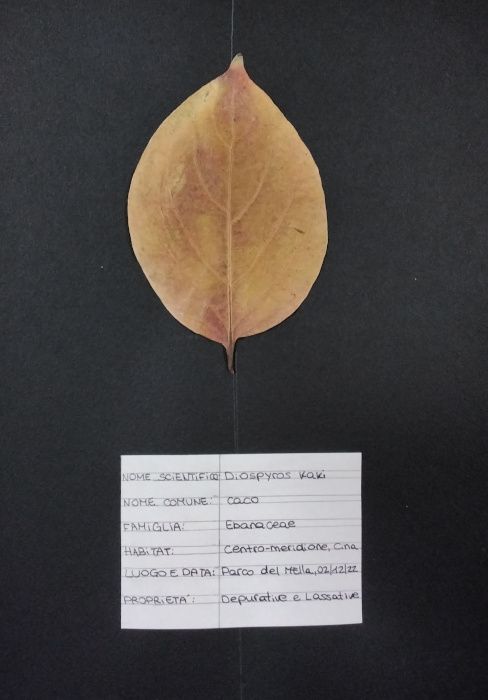 NOME SCIENTIFICO Diospyros Kaki
NOME COMUNE: caco
FAMIGLIA: Ebanaceae
HABITAT: centro-meridione, Cina
LUOGO E DATA: Parco del Mella, 02/12/22
PROPRIETA': Depurative e Lassative